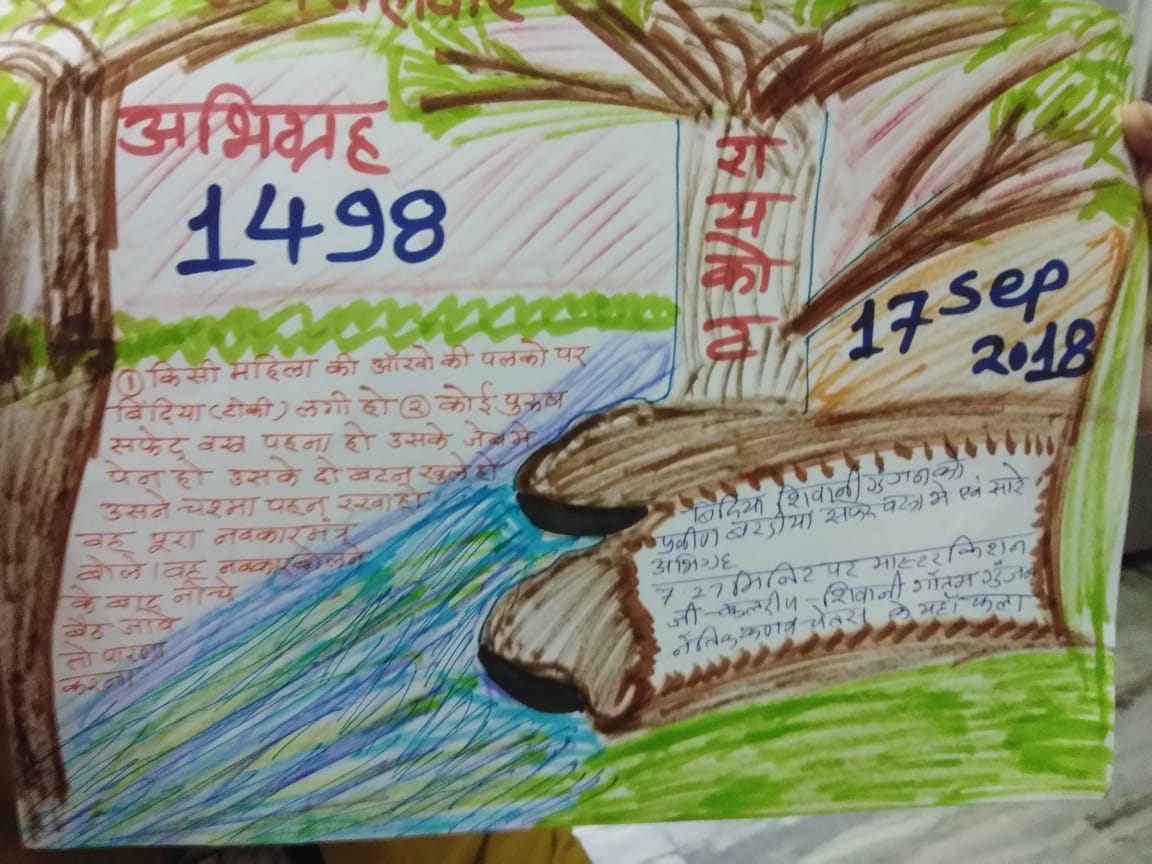 महावीर
अभिग्रह
1498
रायकोट
17 Sep
2018
① किसी महिला की आँखो की पलको पर
बिंदिया (टीकी) लगी हो ② कोई पुरुष
सफेद वस्त्र पहना हो उसके जेब मे
पेन हो उसके दो बटन खुले हो
उसने चश्मा पहन रखा हो
वह पूरा नवकार मंत्र
बोले । वह नवकार बोलने
के बाद नीचे
बैठ जावे
तो पारणा
करना
बिंदिया शिवानी गुंजन को
प्रवीण बरड़ीया सफेद वस्त्र मे एवं सारे
अभिग्रह
7.27 मिनिट पर मास्टर किशन
जी - कुलदीप - शिवानी गौतम गुंजन
के यहाँ फला